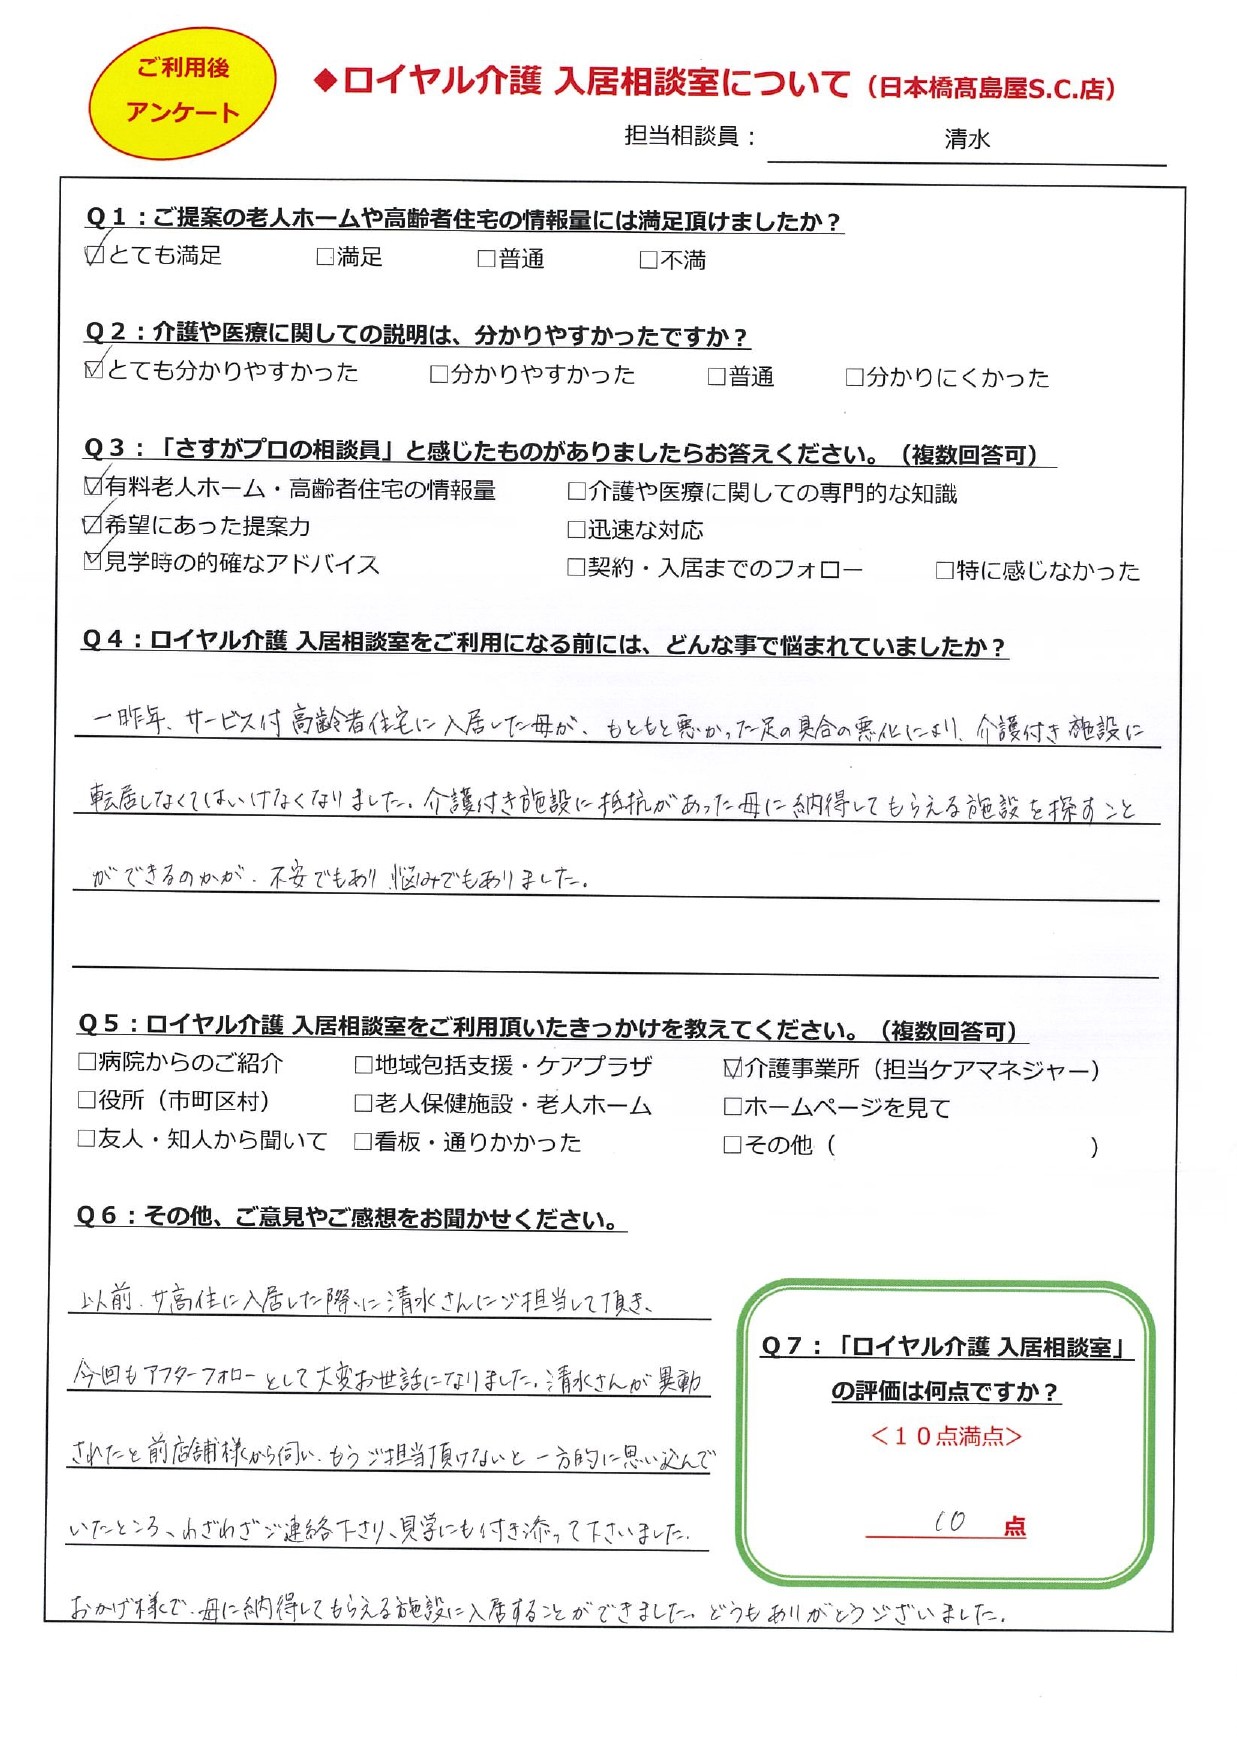 ご利用後
アンケート
◆ロイヤル介護 入居相談室について（日本橋髙島屋S.C.店）
担当相談員： 清水
Q１：ご提案の老人ホームや高齢者住宅の情報量には満足頂けましたか？
☑とても満足 □満足 □普通 □不満
Q２：介護や医療に関しての説明は、分かりやすかったですか？
☑とても分かりやすかった □分かりやすかった □普通 □分かりにくかった
Q３：「さすがプロの相談員」と感じたものがありましたらお答えください。（複数回答可）
☑有料老人ホーム・高齢者住宅の情報量 □介護や医療に関しての専門的な知識
☑希望にあった提案力 □迅速な対応
☑見学時の的確なアドバイス □契約・入居までのフォロー □特に感じなかった
Q４：ロイヤル介護 入居相談室をご利用になる前には、どんな事で悩まれていましたか？
一昨年、サービス付高齢者住宅に入居した母が、もともと悪かった足の具合の悪化により、介護付き施設に
転居しなくてはいけなくなりました。介護付き施設に抵抗があった母に納得してもらえる施設を探すこと
ができるのかが、不安でもあり、悩みでもありました。
Q５：ロイヤル介護 入居相談室をご利用頂いたきっかけを教えてください。（複数回答可）
□病院からのご紹介 □地域包括支援・ケアプラザ ☑介護事業所（担当ケアマネジャー）
□役所（市町区村） □老人保健施設・老人ホーム □ホームページを見て
□友人・知人から聞いて □看板・通りかかった □その他（ ）
Q６：その他、ご意見やご感想をお聞かせください。
以前、サ高住に入居した際に清水さんにご担当して頂き、
今回もアフターフォローとして大変お世話になりました。清水さんが異動
されたと前店舗様から伺い、もうご担当頂けないと一方的に思い込んで
いたところ、わざわざご連絡下さり、見学にも付き添って下さいました。
おかげ様で、母に納得してもらえる施設に入居することができました。どうもありがとうございました。
Q７：「ロイヤル介護 入居相談室」
の評価は何点ですか？
＜１０点満点＞
10 点